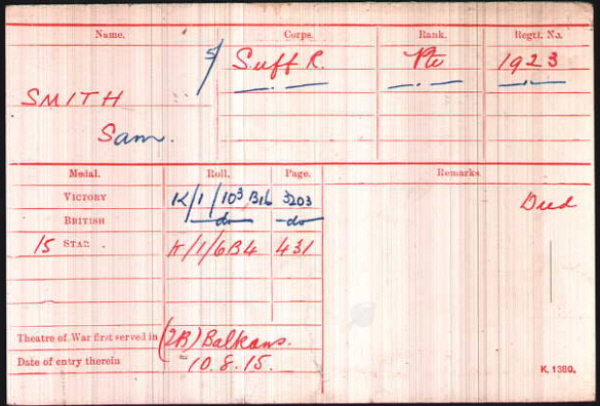 Name. Corps. Rank. Regtl. No.
5/ Suff R. Pte 1923
SMITH
Sam.
Medal. Roll. Page. Remarks.
VICTORY K/1/103 B16 3203 Died
BRITISH -do- -do-
15 STAR K/1/6B4 431
Theatre of War first served in (2B) Balkans.
Date of entry therein 10.8.15.
K. 1380.